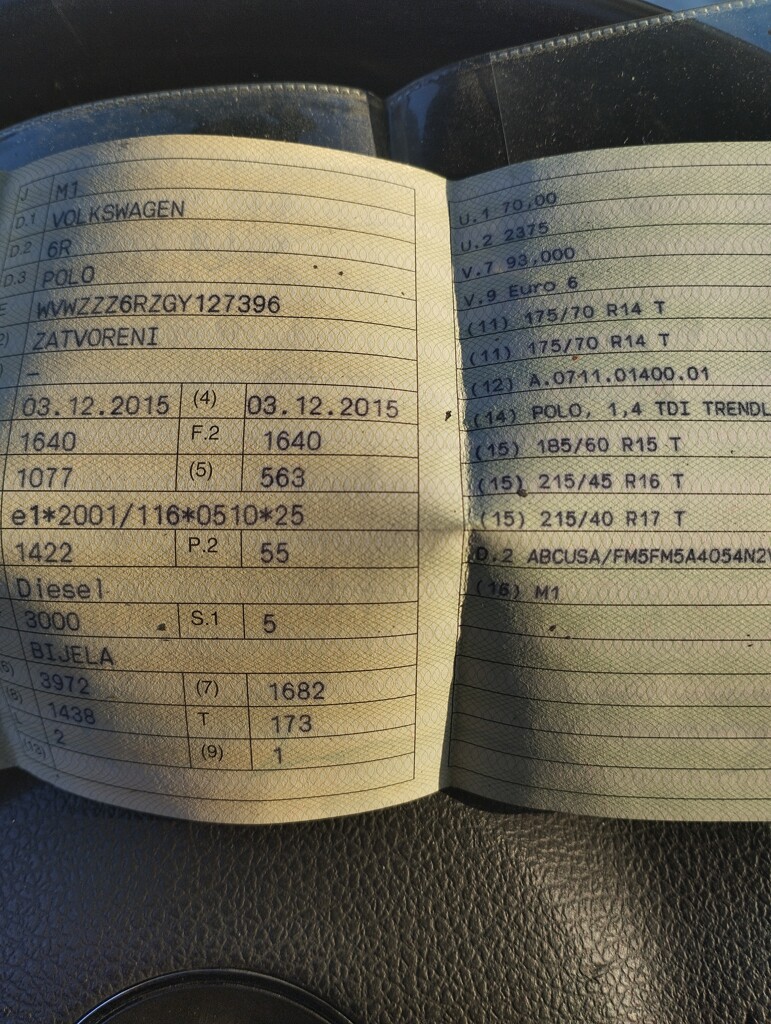 J M1
D.1 VOLKSWAGEN
D.2 6R
D.3 POLO
E WVWZZZ6RZGY127396
2) ZATVORENI
) –
03.12.2015 (4) 03.12.2015
1640 F.2 1640
1077 (5) 563
e1*2001/116*0510*25
1422 P.2 55
Diesel
3000 S.1 5
BIJELA
6) 3972 (7) 1682
(8) 1438 T 173
(13) 2 (9) 1
U.1 70,00
U.2 2375
V.7 93,000
V.9 Euro 6
(11) 175/70 R14 T
(11) 175/70 R14 T
(12) A.0711.01400.01
(14) POLO, 1,4 TDI TRENDL
(15) 185/60 R15 T
(15) 215/45 R16 T
(15) 215/40 R17 T
D.2 ABCUSA/FM5FM5A4054N2V
(16) M1